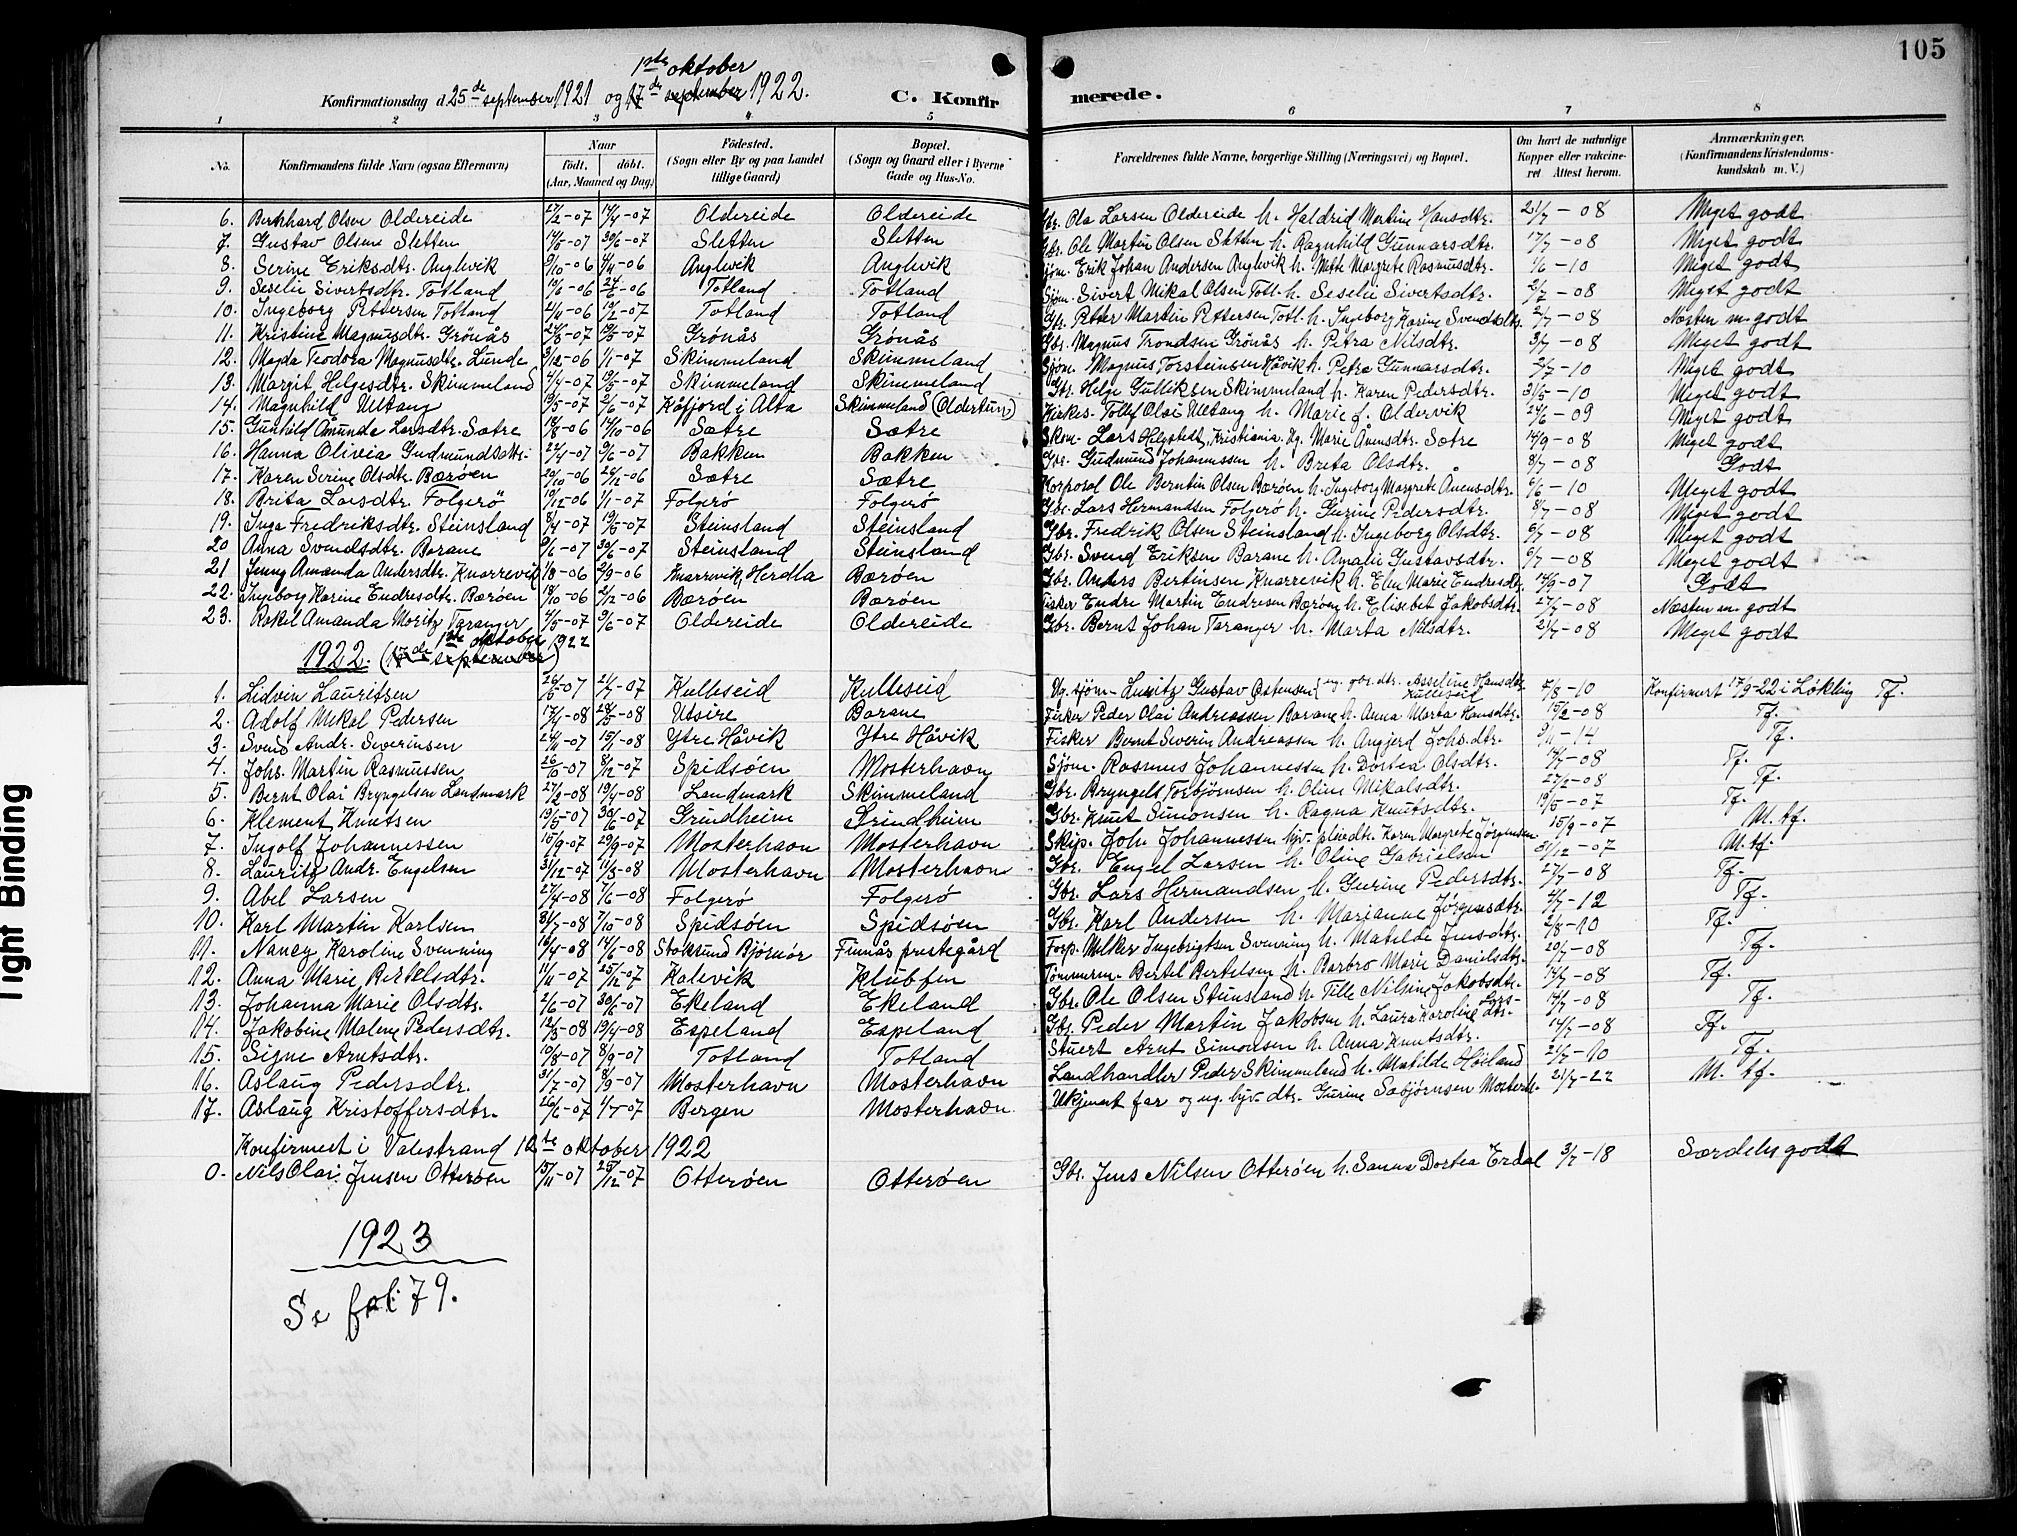 105
1ste oktober
Konfirmationsdag d 25de september 1921 og 17de september 1922. C. Konfirmerede.
1 2 3 4 5 6 7 8
No. Konfirmandens fulde Navn (ogsaa Efternavn) Naar født. døbt. (Aar, Maaned og Dag) Fødested. (Sogn eller By og paa Landet tillige Gaard) Bopæl. (Sogn og Gaard eller i Byerne Gade og Hus-No. Forældrenes fulde Navne, borgerlige Stilling (Næringsvei) og Bopæl. Om havt de naturlige Kopper eller vakcineret Attest herom. Anmærkninger. (Konfirmandens Kristendomskundskab m. V.)
6. Bernhard Olsen Oldereide 27/2-07 14/4-07 Oldereide Oldereide Gbr. Ola Larsen Oldereide h. Haldrid Martine Hansdtr. 21/7-08 Meget godt
7. Gustav Olsen Sletten 14/5-07 30/6-07 Sletten Sletten Gbr. Ole Martin Olsen Sletten h. Ragnhild Gunnarsdtr. 17/7-08 Meget godt
8. Serine Eriksdtr. Anglevik 9/10-06 4/11-06 Anglevik Anglevik Sjøm. Erik Johan Andersen Anglevik h. Mette Margrete Rasmusdtr. 1/6-10 Meget godt
9. Seselie Sivertsdtr. Totland -06 -06 Totland Totland Sjøm. Sivert Mikal Olsen Totl. h. Seselie Sivertsdtr. 2/7-08 Meget godt
10. Ingeborg Pettersen Totland -06 -07 Totland Totland Gbr. Petter Martin Pettersen Totl. h. Ingeborg Karine Svendsdtr. 2/7-08 Næsten m. godt
11. Kristine Magnusdtr. Grönås -07 19/5-07 Grönås Grönås Gbr. Magnus Trondsen Grönås h. Petra Nilsdtr. 3/7-08 Meget godt
12. Magda Teodora Magnusdtr. Lunde 3/12-06 1/1-07 Skimmeland Skimmeland Sjøm. Magnus Torsteinsen Håvik h. Petra Gunnarsdtr. 2/7-10 Meget godt
13. Margit Helgesdtr. Skimmeland 4/4-07 19/5-07 Skimmeland Skimmeland Gbr. Helge Gulliksen Skimmeland h. Karen Pedersdtr. 31/5-10 Meget godt
14. Magnhild Ultang 19/5-07 2/6-07 Kåfjord i Alta Skimmeland (Oldertun) Kirkes. Tollef Olai Ultang h. Marie f. Oldervik 24/6-09 Meget godt
15. Gunhild Amunda Larsdtr. Sætre 18/8-06 14/10-06 Sætre Sætre Skom. Lars Helgstedt, Kristiania. Ug. Marie Ånensdtr. Sætre 14/9-08 Meget godt
16. Hanna Olivia Gudmundsdtr. 22/4-07 9/6-07 Bakken Bakken Gbr. Gudmund Johannessen h. Breta Olsdtr. 8/7-08 Godt
17. Karen Serine Olsdtr. Bærøen 20/10-06 -06 Sætre Sætre Korporal Ole Berntin Olsen Bærøen h. Ingeborg Margrete Ånensdtr. 6/6-10 Meget godt
18. Brita Larsdtr. Folgerö 10/12-06 1/1-07 Folgerø Folgerø Gbr. Lars Hermandsen Folgerø h. Gurine Pedersdtr. 8/7-08 Meget godt
19. Inga Fredriksdtr. Steinsland 8/4-07 19/5-07 Steinsland Steinsland Gbr. Fredrik Olsen Steinsland h. Ingeborg Olsdtr. 6/7-08 Meget godt
20 Anna Svendsdtr. Barane 9/6-07 30/6-07 Steinsland Steinsland Gbr. Svend Eriksen Barane h. Amalie Gustavsdtr. 6/7-08 Meget godt
21 Jenny Amanda Andersdtr. Knarrevik 1/8-06 2/9-06 Knarrevik, Herdla Bærøen Gbr. Anders Bertinsen Knarrevik h. Elen Marie Endresdtr. 14/9-07 Godt
22. Ingeborg Karine Endresdtr. Bærøen 18/10-06 2/12-06 Bærøen Bærøen Fisker Endre Martin Endresen Bærøen h. Elisebet Jakobsdtr. 27/7-08 Næsten m. godt
23. Rakel Amanda Moritz Taranger 4/5-07 9/6-07 Oldereide Oldereide Gbr. Bernt Johan Taranger h. Marta Nilsdtr. 21/7-08 Meget godt
1922. (17de september) 1ste oktober 1922
1. Lidvin Lauritsen 26/5-07 21/7-07 Kulleseid Kulleseid Ug. sjøm. Lauritz Gustav Østensen (ug. gbr.dtr. Asseline Hansdtr. Kulleseid 5/8-10 Konfirmert 17/9-22 i Løkling Tf.
2. Adolf Mikal Pedersen 17/4-08 28/5-08 Utsire Barane Fisker Peder Olai Andreassen Barane h. Anna Marta Hansdtr. 15/2-08 Tf.
3. Svend Andr. Severinsen 24/11-07 15/1-08 Ytre Håvik Ytre Håvik Fisker Bernt Severin Andreassen h. Angjerd Johs.dtr. -14 Tf.
4. Johs. Martin Rasmussen 26/10-07 8/12-07 Spidsøen Mosterhavn Sjøm. Rasmus Johannessen h. Dortea Olsdtr. 14/7-08 Tf.
5. Bernt Olai Bryngelsen Landmark 27/2-08 19/4-08 Landmark Skimmeland Gbr. Bryngels Torbjørnsen h. Oline Mikalsdtr. -08 Tf.
6. Klement Knutsen 19/5-07 30/6-07 Grindheim Grindheim Gbr. Knut Simonsen h. Ragna Knutsdtr. 19/5-07 Tf.
7. Ingolf Johannessen 15/9-07 29/9-07 Mosterhavn Mosterhavn Skip. Johs Johannessen h. Karen Margrete Jørgensen 15/9-07 M. tf.
8. Lauritz Andr. Engelsen 31/12-07 11/3-08 Mosterhavn Mosterhavn Gbr. Engel Larsen h. Oline Gabrielsen 31/12-07 M. tf.
9. Abel Larsen 27/4-08 7/6-08 Folgerø Folgerø Gbr. Lars Hermandsen h. Gurine Pedersdtr. 27/7-08 Tf.
10. Karl Martin Karlsen 31/7-08 7/10-08 Spidsøen Spidsøen Gbr. Karl Andersen h. Marianne Jørgensdtr. -12 Tf.
11. Nancy Karoline Svenning 16/4-08 14/6-08 Stoksund Bjørnør Finnås prestegård Forp. Melker Ingebrigtsen Svenning h. Matilde Jensdtr. 2/8-10 Tf.
12. Anna Marie Bertelsdtr. 11/11-07 25/12-07 Kalevik Klubben Tømmerm. Bertel Bertelsen h. Barbro Marie Danielsdtr. 20/7-08 Tf.
13. Johanna Marie Olsdtr. 2/6-07 30/6-07 Ekeland Ekeland Gbr. Ole Olsen Steinsland h. Tille Nilsine Jakobsdtr. 14/7-08 Tf.
14. Jakobine Malene Pedersdtr. 12/3-08 19/4-08 Espeland Espeland Gbr. Peder Martin Jakobsen h. Laura Karoline Larsdtr. 14/7-08 Tf.
15. Signe Arntsdtr. 10/8-07 8/9-07 Totland Totland Stuert Arnt Simonsen h. Anna Knutsdtr. 14/7-08 Tf.
16. Aslaug Pedersdtr. 31/7-07 8/9-07 Mosterhavn Mosterhavn Landhandler Peder Skimmeland h. Matilde Høiland 21/7-10 Tf.
17. Aslaug Kristoffersdtr. 26/6-07 4/7-07 Bergen Mosterhavn. Ukjent far og ug. byr.dtr. Gurine Sabjørnsen Mosterh. 21/7-22 M. tf.
Konfirmert i Valestrand 1ste oktober 1922
0. Nils Olai Jensen Otterøen 15/11-07 25/12-07 Otterøen Otterøen Gbr. Jens Nilsen Otterøen h. Sanna Dortea Erdal 3/7-18 Særdeles godt
1923
Se fol: 79.
Tight Binding